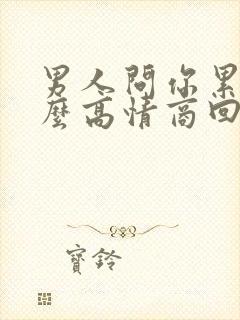 男人問你累
麼高情商回
寶鈴